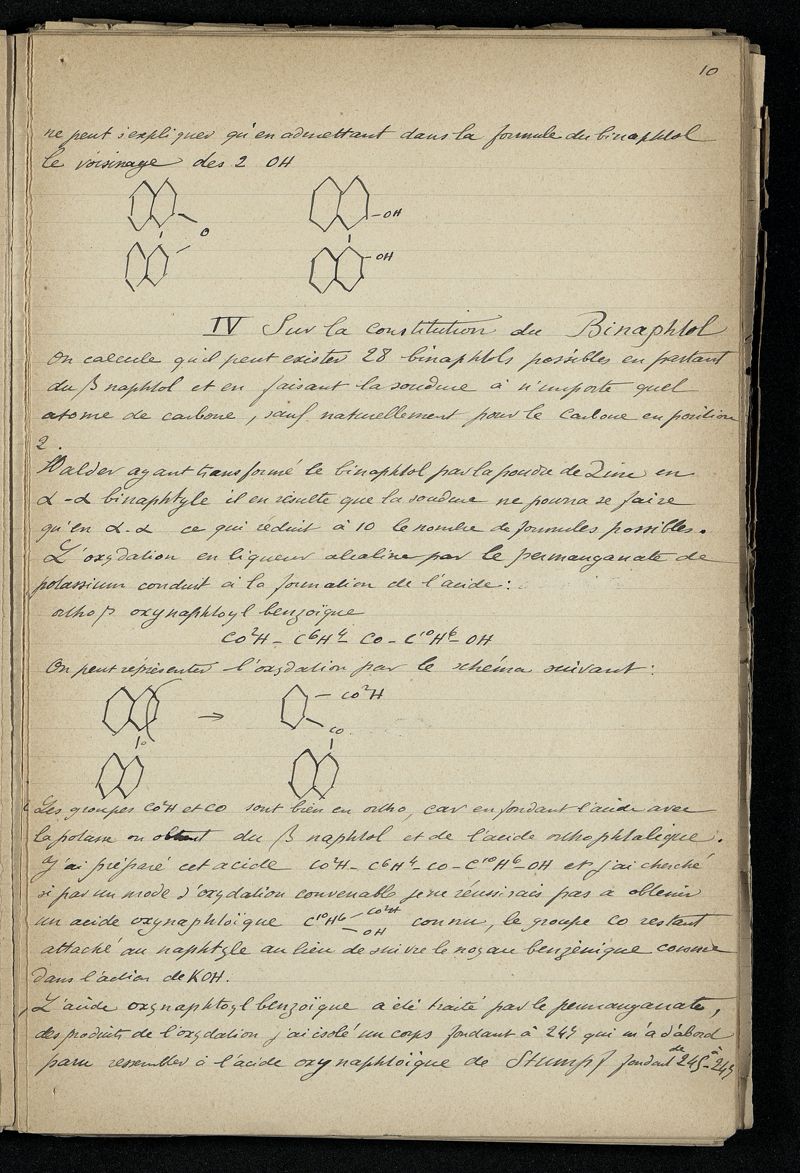 10
ne peut s'expliquer qu'en admettant dans la formule du binaphtol
le voisinage des 2 OH
O
OH
OH
IV Sur la constitution du Binaphtol
On calcule qu'il peut exister 28 binaphtols possibles en partant
du β naphtol et en faisant la soudure à n'importe quel
atome de carbone, sauf naturellement pour le carbone en position
2.
Walder ayant transformé le binaphtol par la poudre de Zinc en
α-α binaphtyle il en résulte que la soudure ne pourra se faire
qu'en α.α ce qui réduit à 10 le nombre de formules possibles.
L'oxydation en liqueur alcaline par le permanganate de
potassium conduit à la formation de l'acide:
ortho β oxynaphtoyl benzoïque
CO²H - C⁶H⁴ - CO - C¹⁰H⁶ - OH
On peut représenter l'oxydation par le schéma suivant:
→ CO²H
CO
Les groupes CO²H et CO sont bien en ortho, car en fondant l'acide avec
la potasse on obtient du β naphtol et de l'acide orthophtalique.
J'ai préparé cet acide CO²H - C⁶H⁴ - CO - C¹⁰H⁶ - OH et j'ai cherché
si par un mode d'oxydation convenable je ne réussirais pas à obtenir
un acide oxynaphtoïque C¹⁰H⁶ - CO²H - OH connu, le groupe CO restant
attaché au naphtyle au lieu de suivre le noyau benzènique comme
dans l'action de KOH.
L'acide oxynaphtoyl benzoïque a été traité par le permanganate,
des produits de l'oxydation j'ai isolé un corps fondant à 249 qui m'a d'abord
paru ressembler à l'acide oxynaphtoïque de Stumpf fondant de 245 à 249